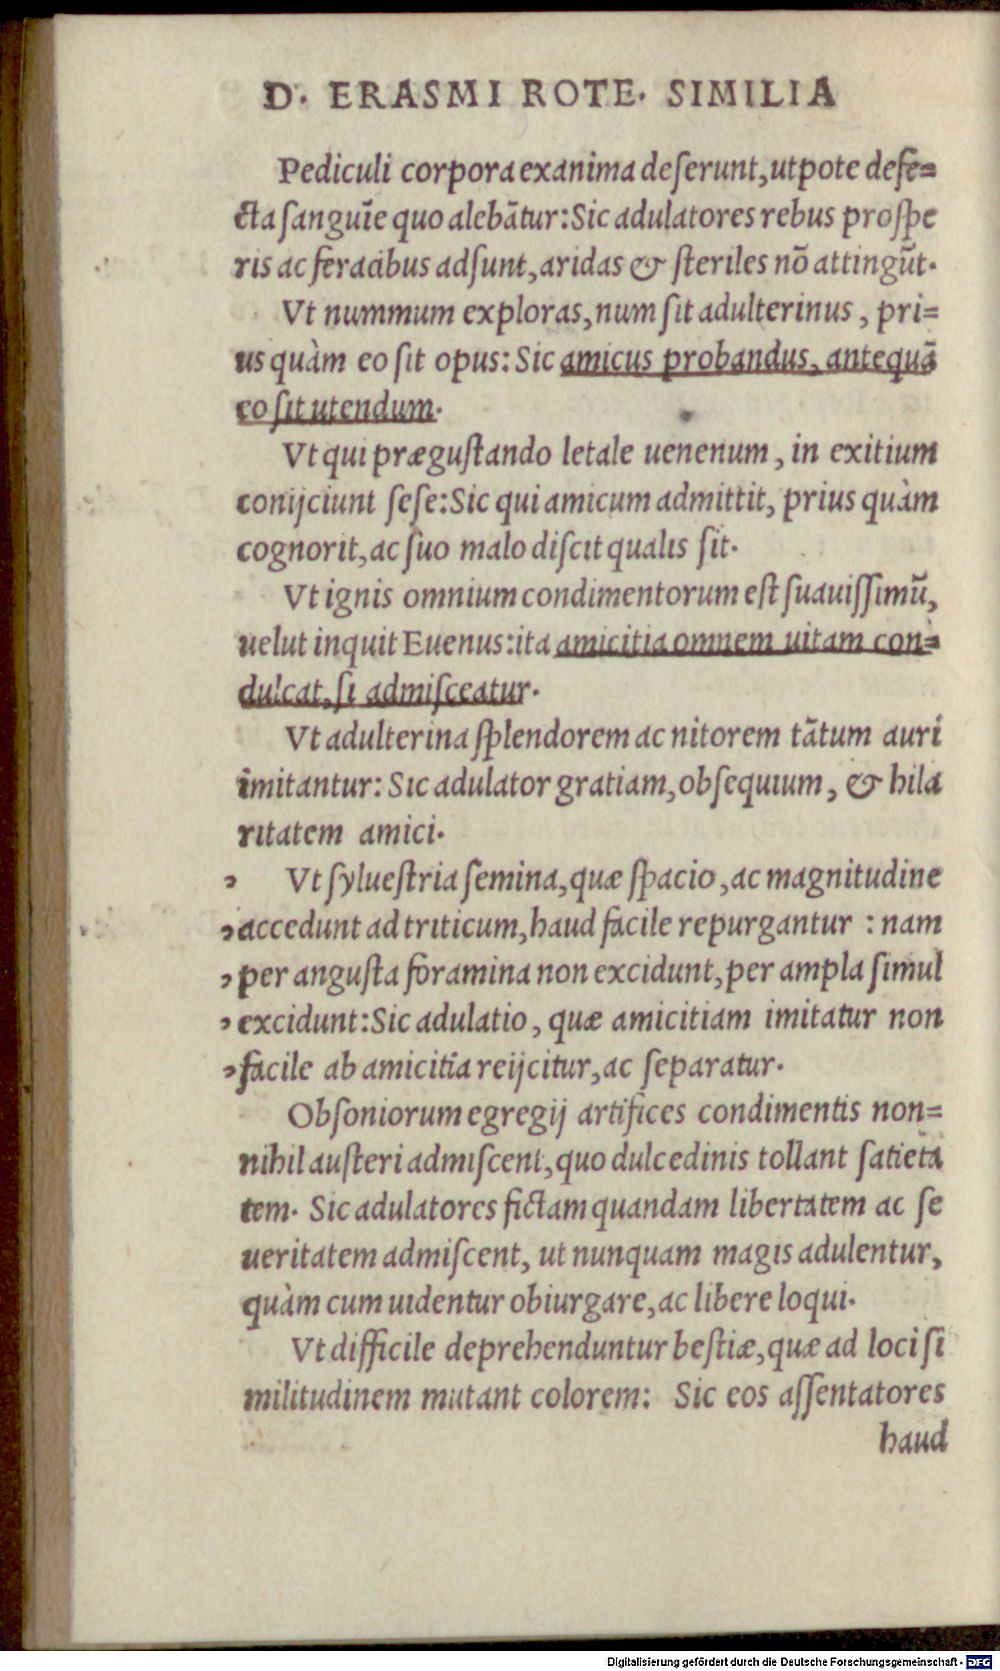 D. ERASMI ROTE. SIMILIA
Pediculi corpora exanima deſerunt, utpote defe=
cta ſanguīe quo alebātur: Sic adulatores rebus proſpe
ris ac feracibus adſunt, aridas & ſteriles nō attingūt.
Vt nummum exploras, num ſit adulterinus, pri=
us quàm eo ſit opus: Sic amicus probandus, antequā
eo ſit utendum.
Vt qui prægustando letale uenenum, in exitium
conijciunt ſeſe: Sic qui amicum admittit, prius quàm
cognorit, ac ſuo malo diſcit qualis ſit.
Vt ignis omnium condimentorum eſt ſuauiſſimū,
uelut inquit Euenus: ita amicitia omnem uitam con=
dulcat, ſi admiſceatur.
Vt adulterina ſplendorem ac nitorem tātum auri
imitantur: Sic adulator gratiam, obſequium, & hila
ritatem amici.
Vt ſylueſtria ſemina, quæ ſpacio, ac magnitudine
accedunt ad triticum, haud facile repurgantur : nam
per anguſta foramina non excidunt, per ampla ſimul
excidunt: Sic adulatio, quæ amicitiam imitatur non
facile ab amicitia reijcitur, ac ſeparatur.
Obſoniorum egregij artifices condimentis non=
nihil auſteri admiſcent, quo dulcedinis tollant ſatieta
tem. Sic adulatores fictam quandam libertatem ac ſe
ueritatem admiſcent, ut nunquam magis adulentur,
quàm cum uidentur obiurgare, ac libere loqui.
Vt difficile deprehenduntur beſtiæ, quæ ad loci ſi
militudinem mutant colorem: Sic eos aſſentatores
haud
Digitalisierung gefördert durch die Deutsche Forschungsgemeinschaft - DFG